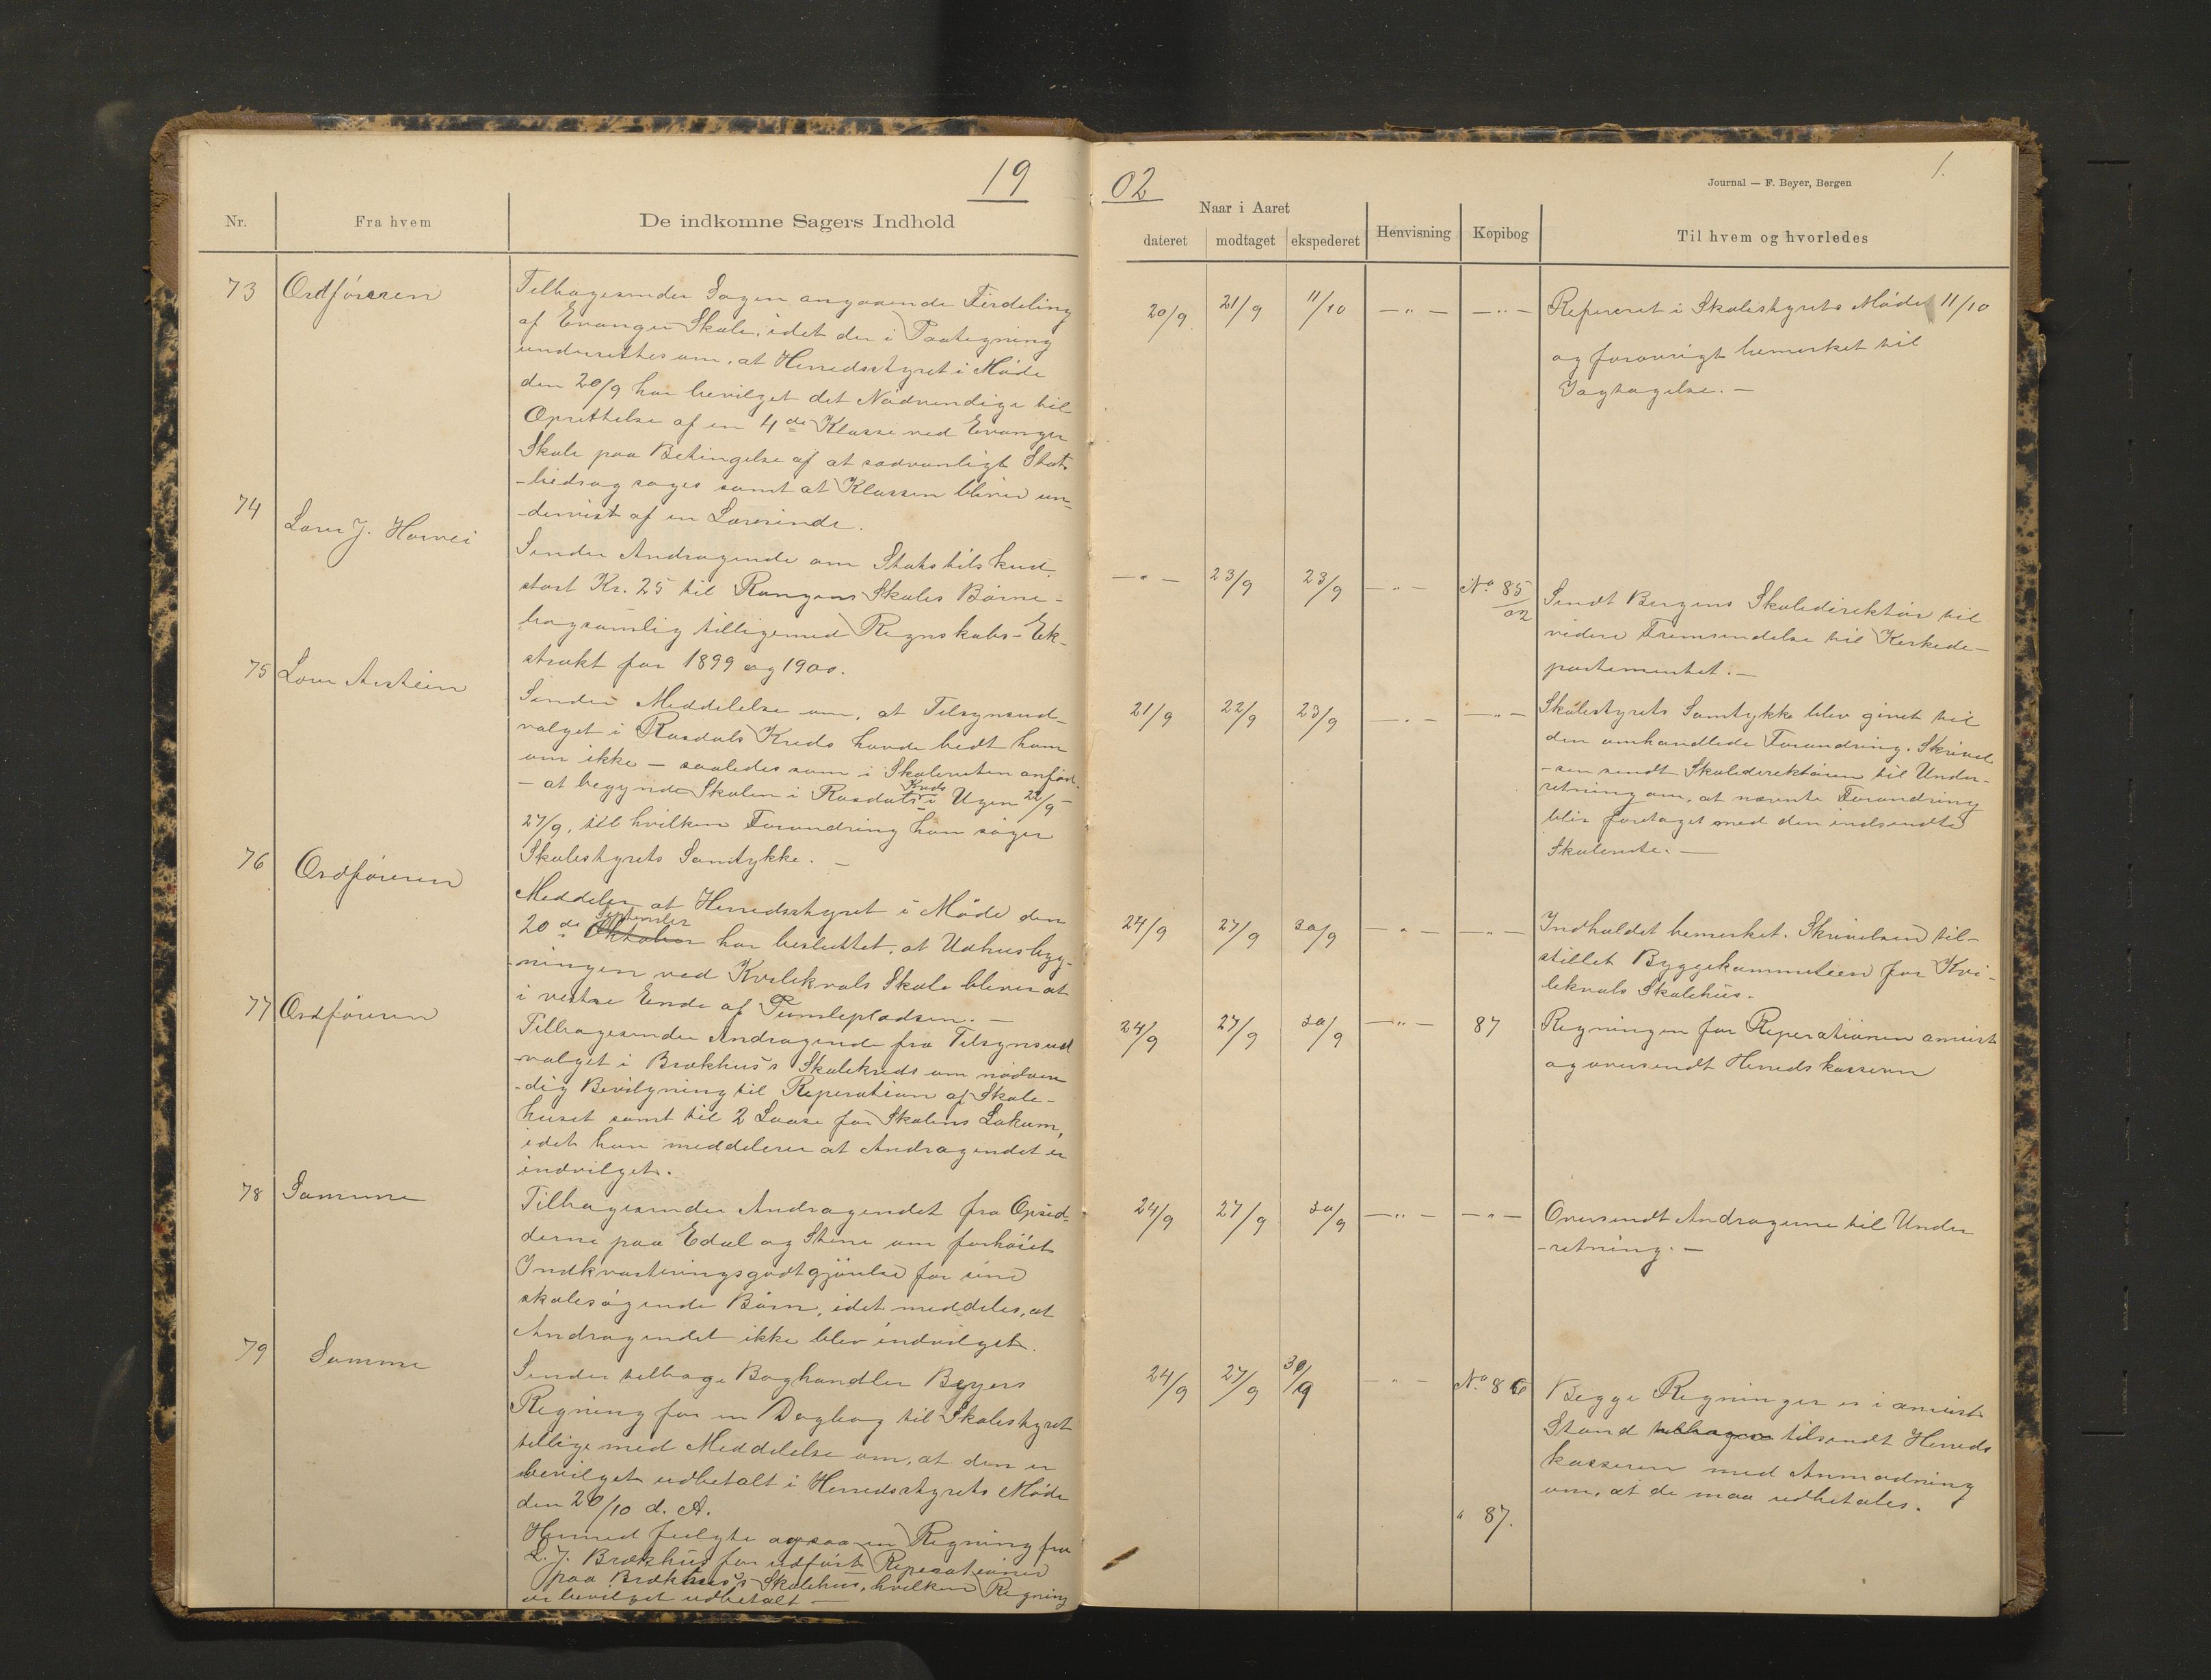 19
Nr.
Fra hvem
De indkomne Sagers Indhold
73
Ordføreren
Tilbagesender Sagen angaaende Firdeling
af Evanger Skole, idet der i Paategning
underrettes om, at Herredsstyret i Møde
den 20/9 har bevilget det Nødvendige til
Oprettelse af en 4de Klasse ved Evanger
Skole paa Betingelse af at sædvanligt Stats
-bidrag søges samt at Klassen bliver un-
-dervist af en Lærerinde.
74
Lærer J. Horvei
Sender Andragende om Statstilskud
stort Kr. 25 til Skoles Børne-
bogsamlig tilligemed Regnskabs-Ek-
strakt for 1899 og 1900.
75
Lærer
Sender Meddelelse om, at Tilsynsud-
valget i Rasdals Kreds havde bedt ham
om ikke – saaledes som i Skoleruten anført
– at begynde Skolen i Rasdals Kreds i Ugen 22/9 -
27/9, til hvilken Forandring han søger
Skolestyrets Samtykke. –
76
Ordføreren
Meddeler at Herredsstyret i Møde den
20de Oktober September har besluttet, at Udhusbyg-
-ningen ved Kvilekvals Skole bliver at
i vestre Ende af Tumlepladsen. –
77
Ordføreren
Tilbagesender Andragende fra Tilsynsud
-valget i Brækhus's Skolekreds om nødven
-dig Bevilgning til Reperation af Skole-
huset samt til 2 Laase for Skolens Lokum,
idet han meddelerer at Andragendet er
indvilget.
78
Samme
Tilbagesender Andragendet fra Opsid-
derne paa Edal og Stene om forhøiet
Indkvarteringsgodtgjörelse for sine
skolesøgende Børn, idet meddeles, at
Andragendet ikke blev indvilget.
79
Samme
Sender tilbage Boghandler Beyers
Regning for en Dagbog til Skolestyret
tillige med Meddelelse om, at den er
bevilget udbetalt i Herredsstyrets Møde
den 20/10 d. A.
Hermed fulgte ogsaa en Regning fra
L. J. Brækhus for udført Reperationer
paa Brækhus's Skolehus, hvilken Regning
er bevilget udbetalt –
02
1.
Journal — F. Beyer, Bergen
Naar i Aaret
dateret
modtaget
ekspederet
Henvisning
Kopibog
Til hvem og hvorledes
20/9 21/9 11/10 —"— —"—
Refereret i Skolestyrets Møde 11/10
og forøvrigt bemerket til
Iagtagelse. –
—"— 23/9 23/9 —"— No 85/02
Sendt Bergens Skoledirektør til
videre Fremsendelse til Kirkede-
partementet. –
21/9 22/9 23/9 —"— —"—
Skolestyrets Samtykke blev givet til
den omhandlede Forandring. Skrivel
-sen sendt Skoledirektøren til Under-
retning om, at nævnte Forandring
blir foretaget med den indsendte
Skolerute. –
24/9 27/9 30/9 —"— —"—
Indholdet bemerket. Skrivelsen til-
stillet Byggekommiteen for Kvi-
lekvals Skolehus.
24/9 27/9 30/9 —"— 87
Regningen for Reperationen anvist
og oversendt Herredskassereren
24/9 27/9 30/9 —"— —"—
Oversendt Andragerne til Under
-retning. –
24/9 27/9 30/9 —"— No 86
Begge Regninger er i anvist
Stand tilbagese tilsendt Herreds
kasseren med Anmodning
om, at de maa udbetales.
" 87.